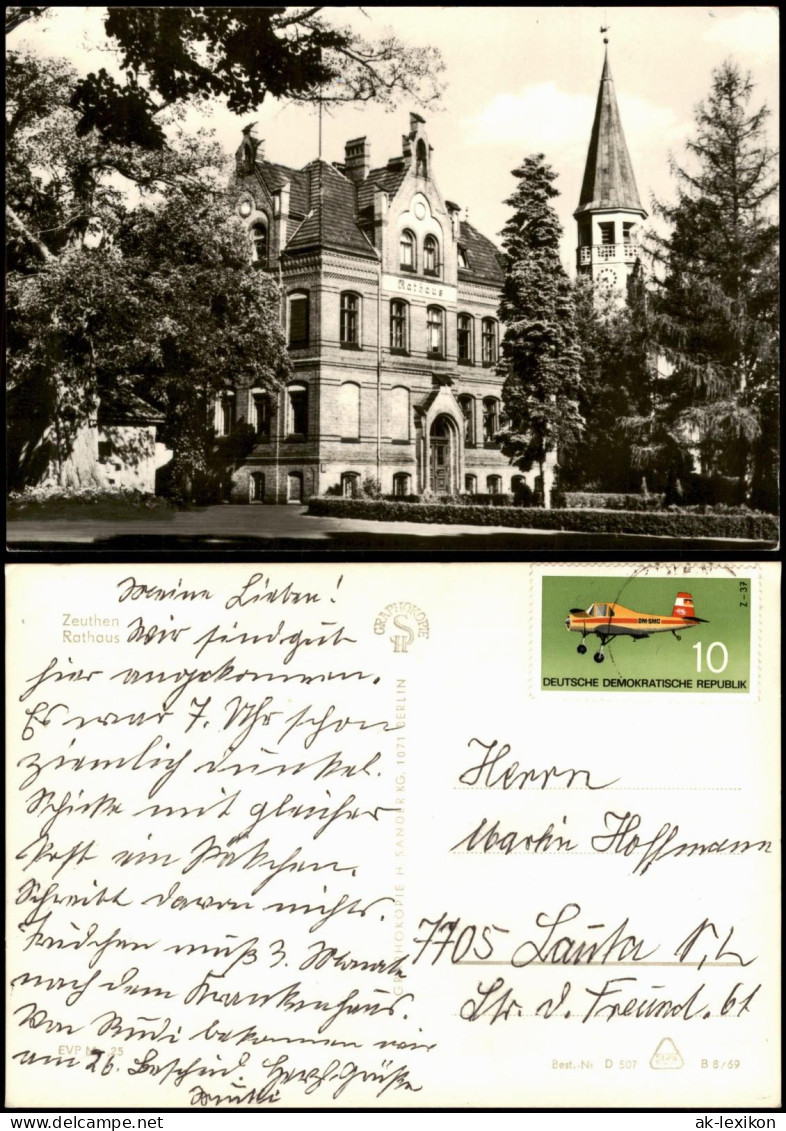 Rathaus
Meine Lieben!
Zeuthen
Rathaus
Wir sind gut
hier angekommen.
Es war 7. Uhr schon
ziemlich dunkel.
Schicke mit gleicher
Post ein Päckchen.
Schreibt davon nichts.
muß 3. Monate
nach dem Krankenhaus.
Von Rudi bekommen wir
am 26. Bescheid. Herzl. Grüße
Mutti
EVP M 25
GRAPHOKOPIE
GRAPHOKOPIE H. SANDER KG. 1071 BERLIN
DM-SMC
Z-37
10
DEUTSCHE DEMOKRATISCHE REPUBLIK
Herrn
Martin Hoffmann
7705 Lauta N,L
Str. d. Freund. 61
Best.-Nr D 507 B 8/69
© oldthing.de
ak-lexikon